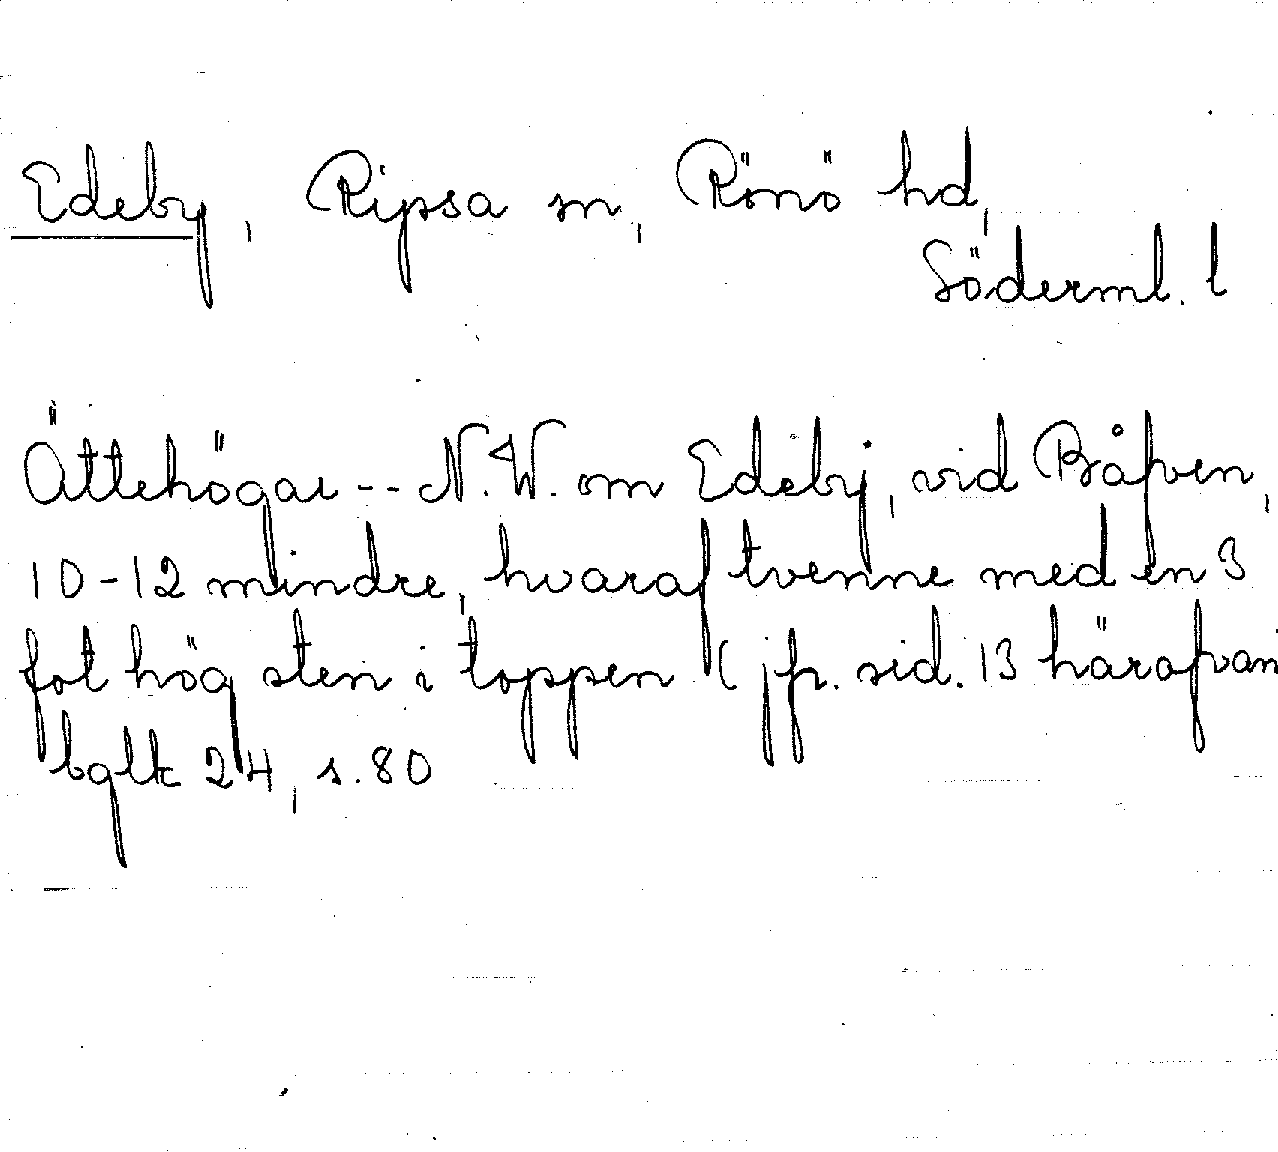 Edeby, Ripsa sn, Rönö hd,
Söderml. l
Ättehögar -- N.W. om Edeby, vid Båfven,
10-12 mindre, hvaraf tvenne med en 3
fot hög sten i toppen (jfr. sid. 13 härofvan
bglk 24, s. 80